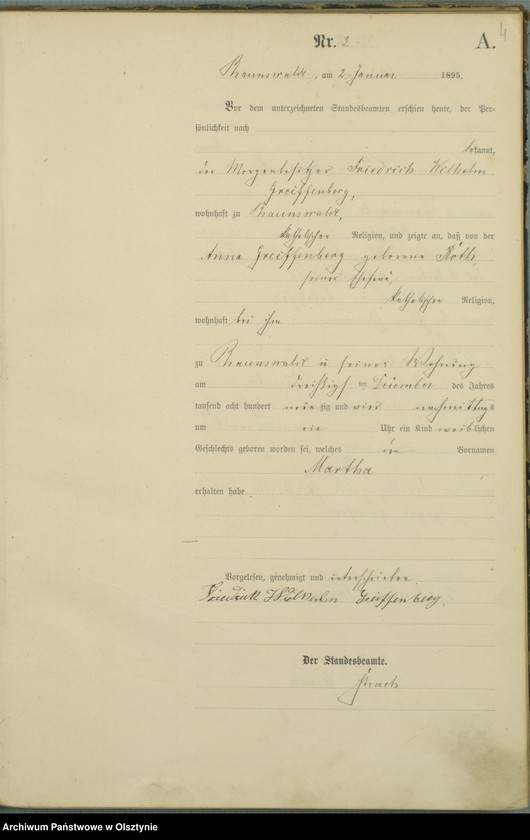 4
Nr. 2 A.
Braunswalde, am 2 Januar 1895.
Vor dem unterzeichneten Standesbeamten erschien heute, der Per-
sönlichkeit nach
bekannt,
der Morgenbesitzer Friedrich Wilhelm
Greiffenberg,
wohnhaft zu Braunswalde,
katholischer Religion, und zeigte an, daß von der
Anna Greiffenberg geborene
seiner Ehefrau,
katholischer Religion,
wohnhaft bei ihm
zu Braunswalde in seiner Wohnung
am dreißigsten Dezember des Jahres
tausend acht hundert neunzig und vier nachmittags
um ein Uhr ein Kind weiblichen
Geschlechts geboren worden sei, welches den Vornamen
Martha
erhalten habe.
Vorgelesen, genehmigt und unterschrieben
Friedrich Wilhelm Greiffenberg.
Der Standesbeamte.
Archiwum Państwowe w Olsztynie